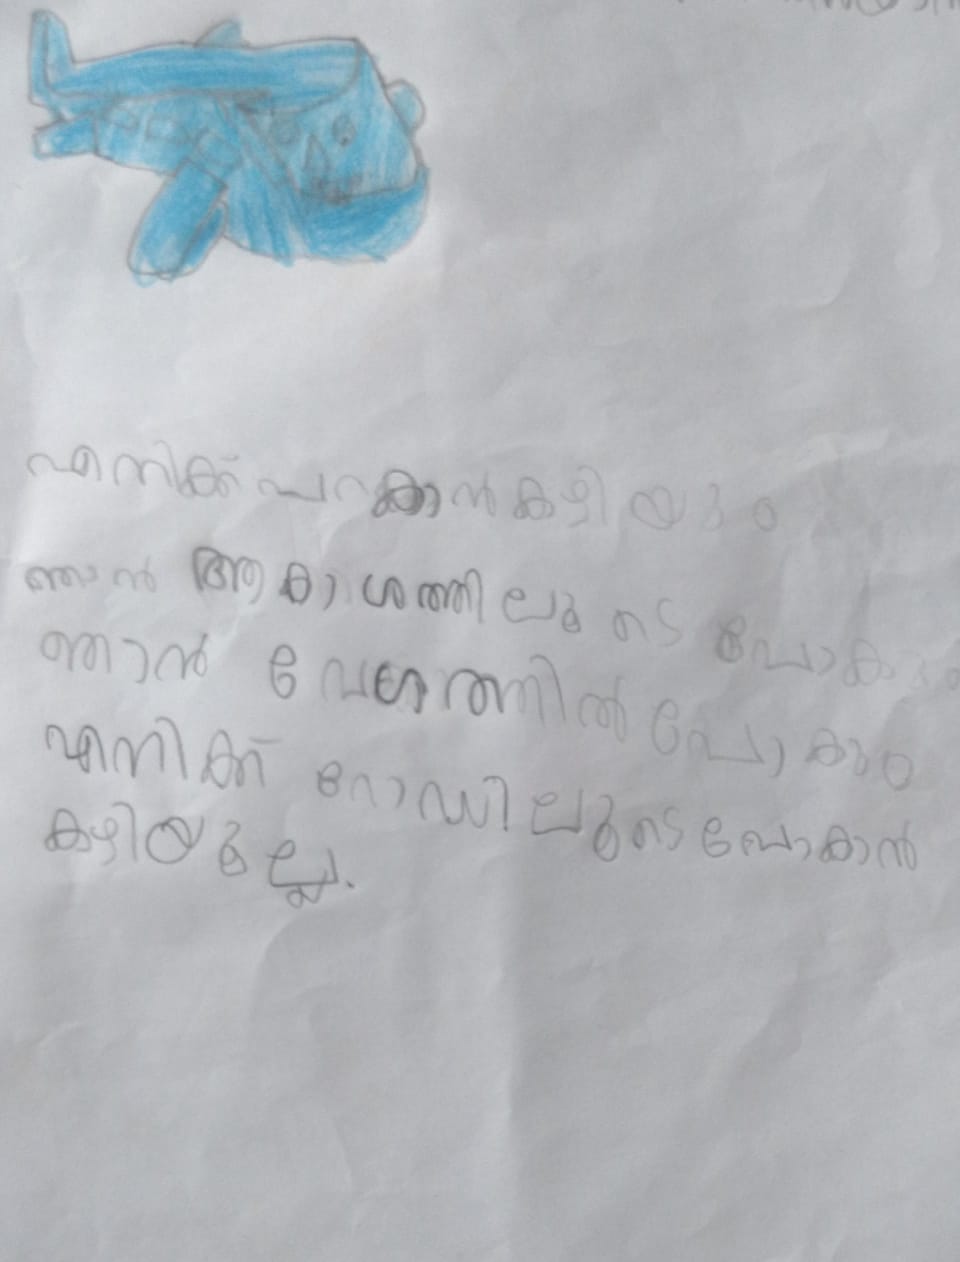 എനിക്ക് പറക്കാൻ കഴിയും
ഞാൻ ആകാശത്തിലൂടെ പോകും
ഞാൻ വേഗത്തിൽ പോകും
എനിക്ക് റോഡിലൂടെ പോകാൻ
കഴിയുല്ല.